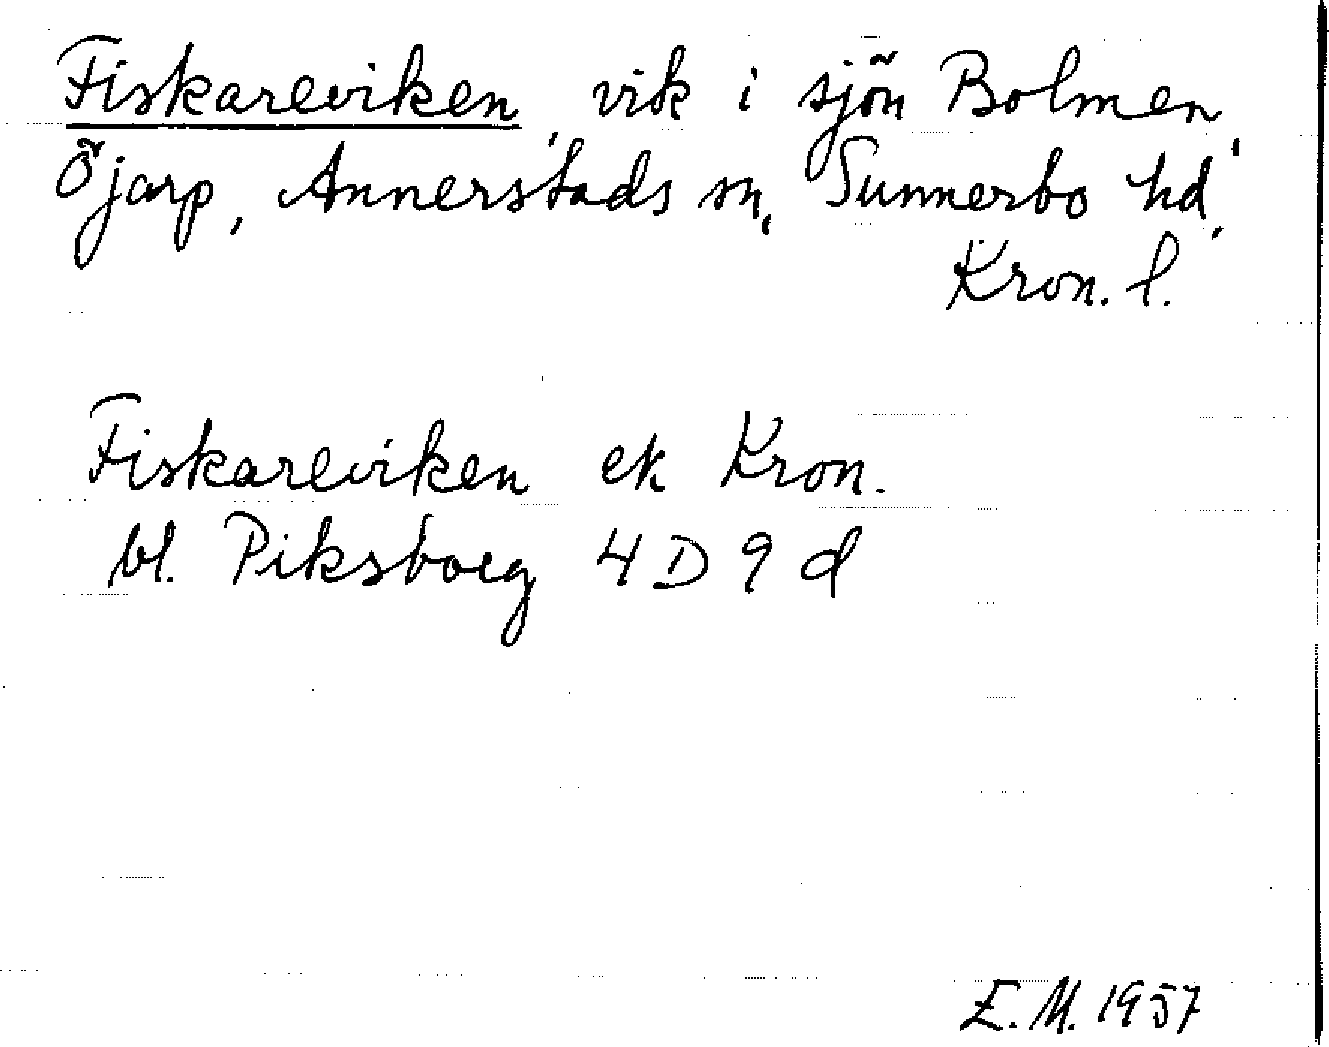 Fiskareviken, vik i sjön Bolmen,
Öjarp, Annerstads sn, Sunnerbo hd,
Kron. l.
Fiskareviken ek Kron.
bl. Piksborg 4 D 9 d
E.M. 1957